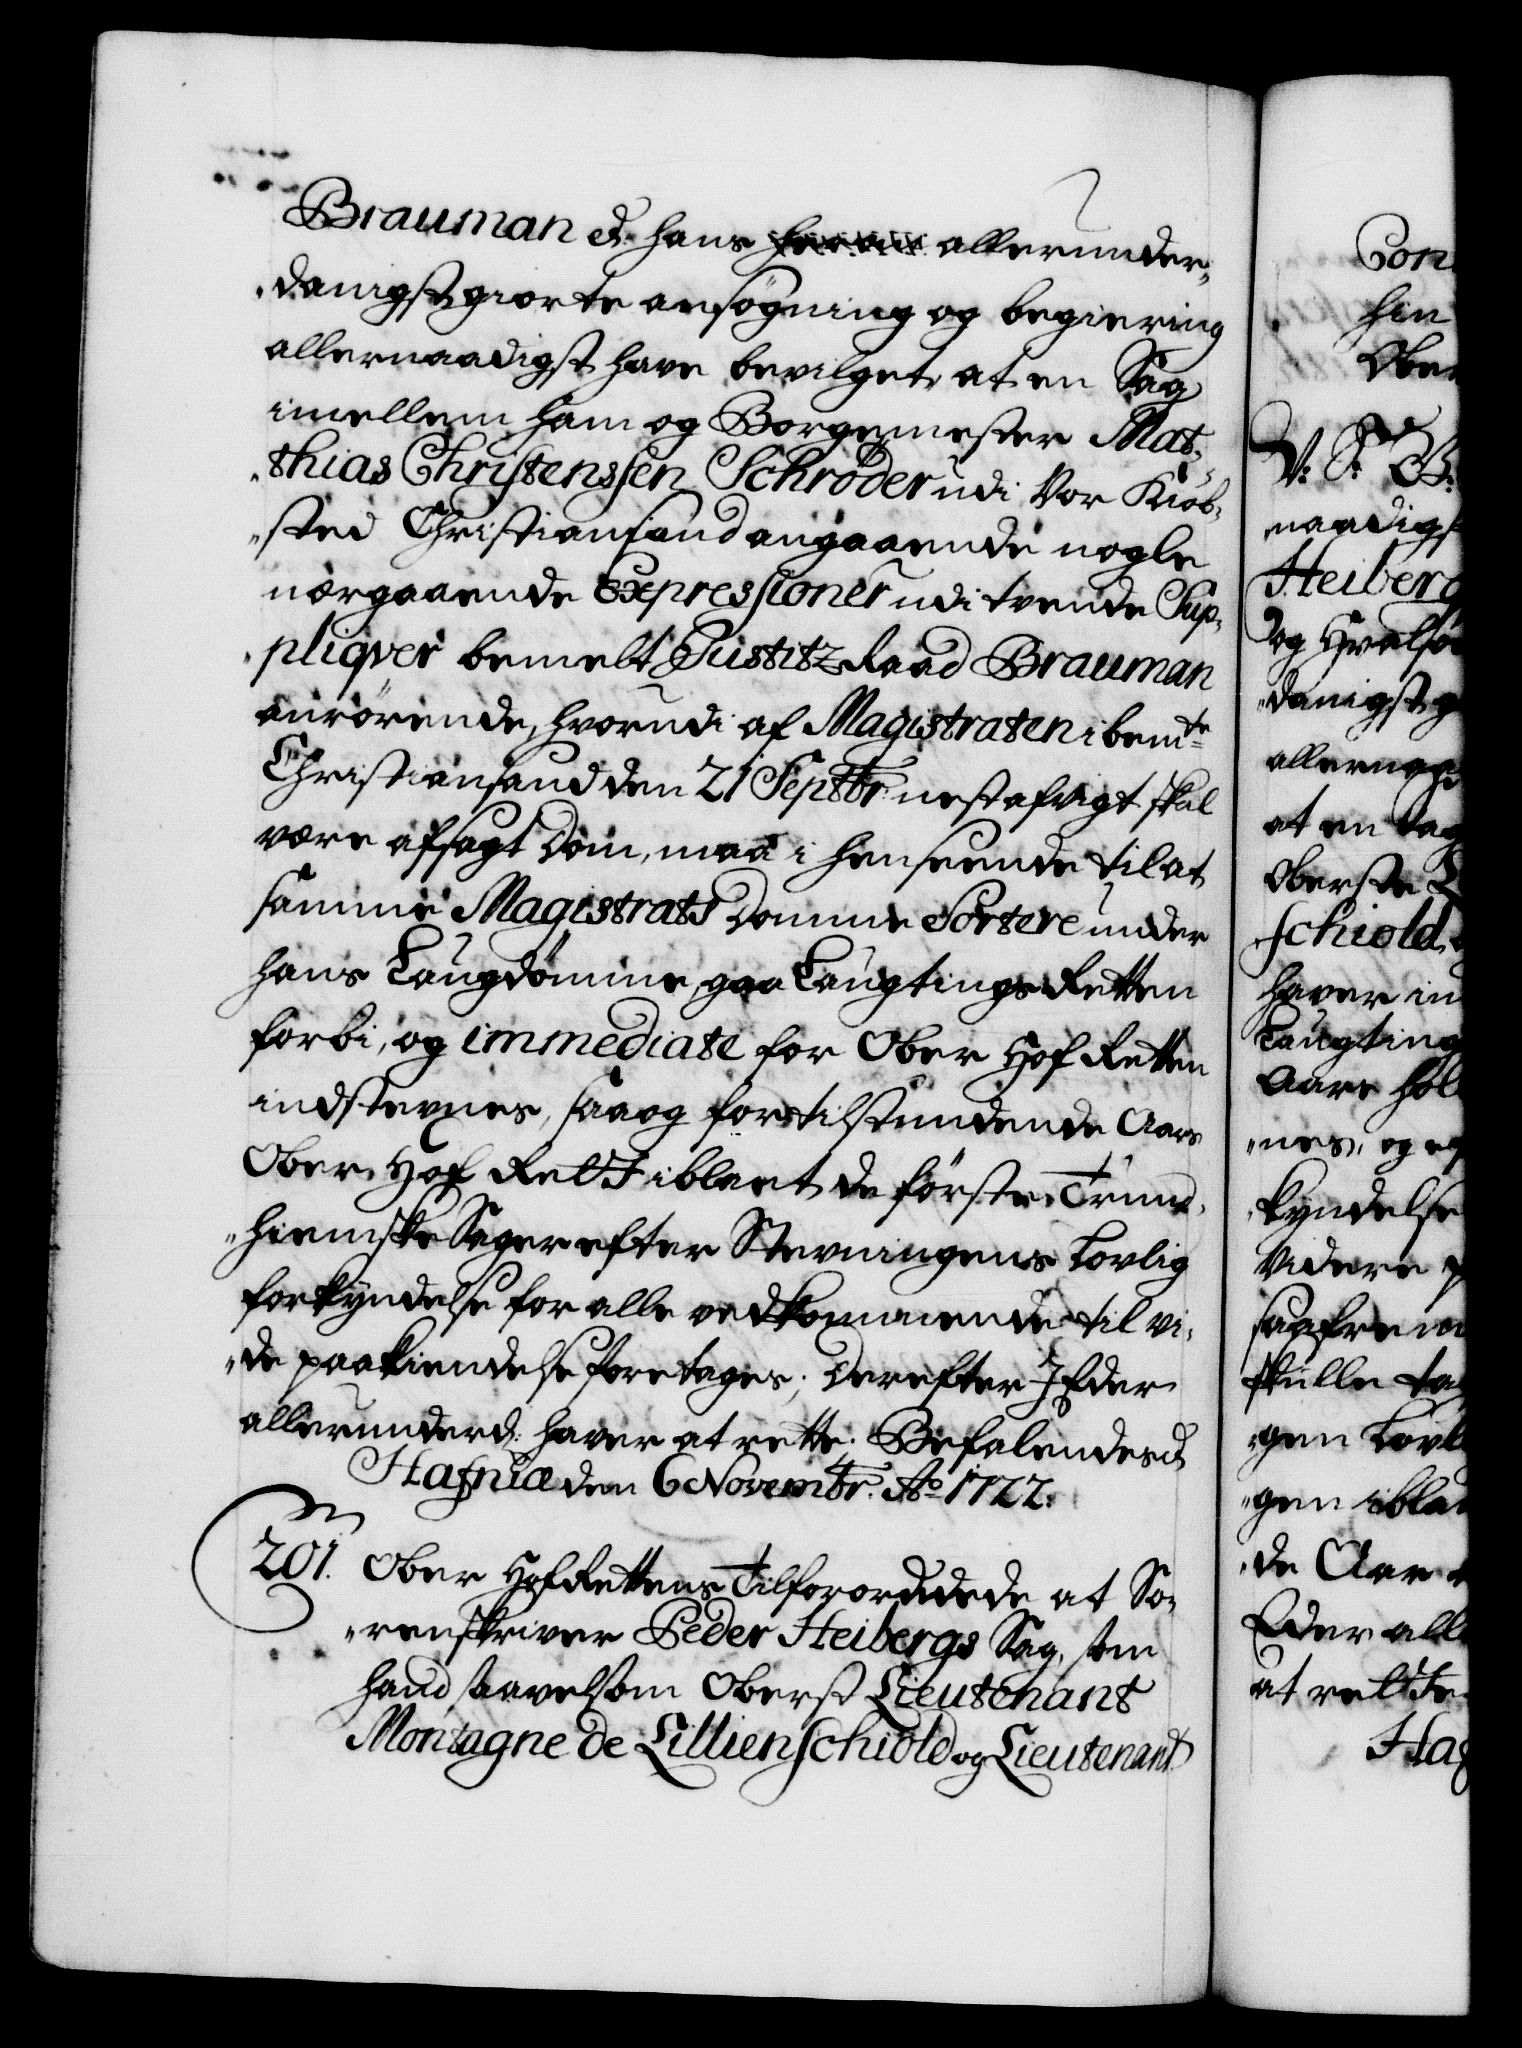 Brauman etc: hans allerunder-
danigst giorte ansøgning og begiering
allernaadigst have bevilget at en Sag
imellem ham og Borgemester Mat-
thias Christenssen Schrøder udi Vor Kiøb-
sted Christiansand angaaende nogle
nærgaaende Expressioner udi tvende Sup-
pliqver bemelt Justitz Raad Brauman
anrørende, hvorudi af Magistraten i bemte
Christiansand den 21 Septbr: nestafvigt skal
være afsagt Dom, maa i henseende til at
samme Magistrats Domme Sortere under
hans Laugdømme, gaa Laugtings Retten
forbi, og immediate for Ober Hof Retten
indstevnes, saa og for tilstundende Aars
Ober Hof Rett iblant de første Trund-
hiemske Sager efter Stevningens Lovlig
forkyndelse for alle vedkommende til vi-
de paakiendelse foretages; Derefter I Eder
allerunderd: haver at rette. Befalendes etc
Hafniæ den 6 Novembr: Ao 1722.
201. Ober Hof Rettens Tilforordnede at So-
renskriver Peder Heibergs Sag, som
hand saavelsom Oberst Lieutenant
Montagne de Lillienschiold og Lieutenant
Con
hin
Ober
V: S: G:
naadigs
Heiberg
og Hvalsø
danigst g
allernaa
at en Sag
Oberste L
schiold,
haver in
Laugting
Aars hol
nes, og ef
kyndelse
Videre p
saa frem
skulle ta
gen Lovl
gen iblan
de Aar
Eder alle
at rette
Haf